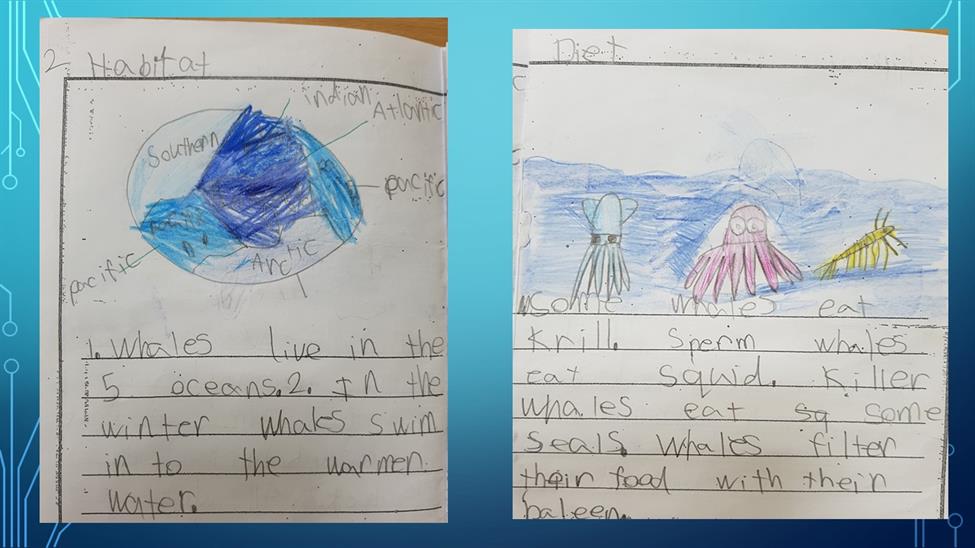 2 Habitat
indian
Atlantic
Southern
pacific
Arctic
pacific
1. Whales live in the
5 oceans. 2. In the
winter whales swim
in to the warmer
water.
Diet
some whales eat
krill. Sperm whales
eat squid. Killer
whales eat sq some
seals. Whales filter
their food with their
baleen.